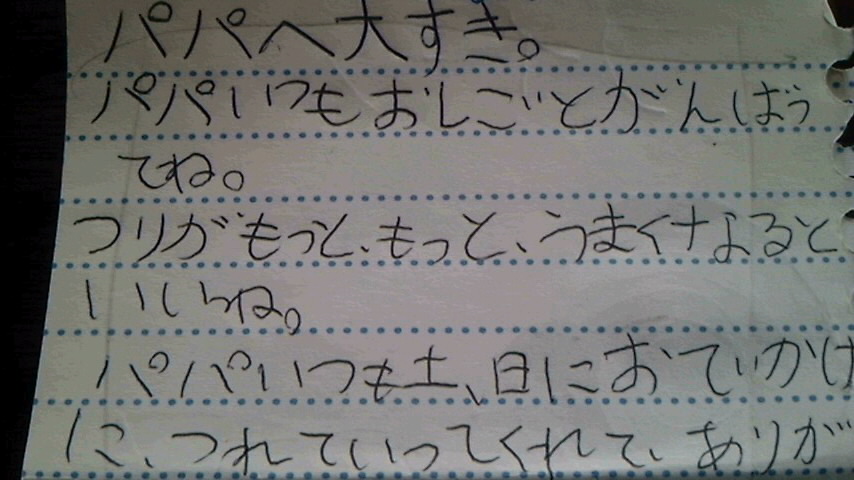 パパへ大すき。
パパいつもおしごとがんばっ
てね。
つりがもっと、もっと、うまくなよると
いいね。
パパいつも土、日におでいかけ
に、つれていってくれて、ありが